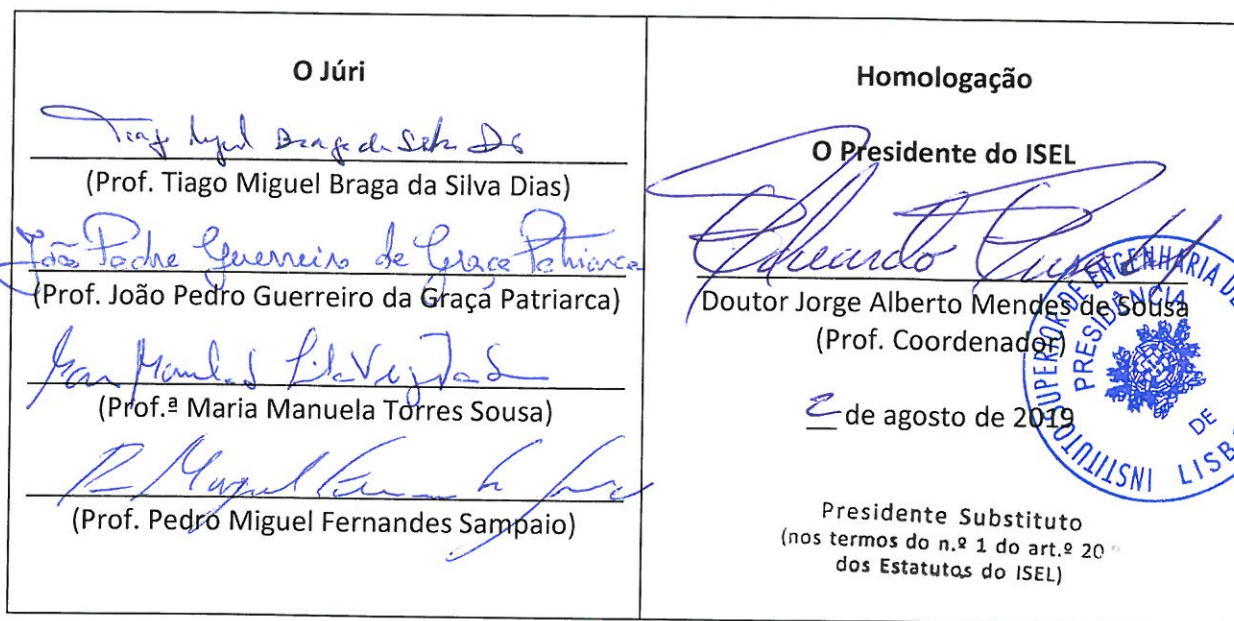 O Júri
Tiago Miguel Braga da Silva Dias
(Prof. Tiago Miguel Braga da Silva Dias)
João Pedro Guerreiro da Graça Patriarca
(Prof. João Pedro Guerreiro da Graça Patriarca)
(Prof.ª Maria Manuela Torres Sousa)
(Prof. Pedro Miguel Fernandes Sampaio)
Homologação
O Presidente do ISEL
Eduardo
Doutor Jorge Alberto Mendes de Sousa
(Prof. Coordenador)
2 de agosto de 2019
Presidente Substituto
(nos termos do n.º 1 do art.º 20
dos Estatutos do ISEL)
INSTITUTO SUPERIOR DE ENGENHARIA DE
PRESIDÊNCIA
DE